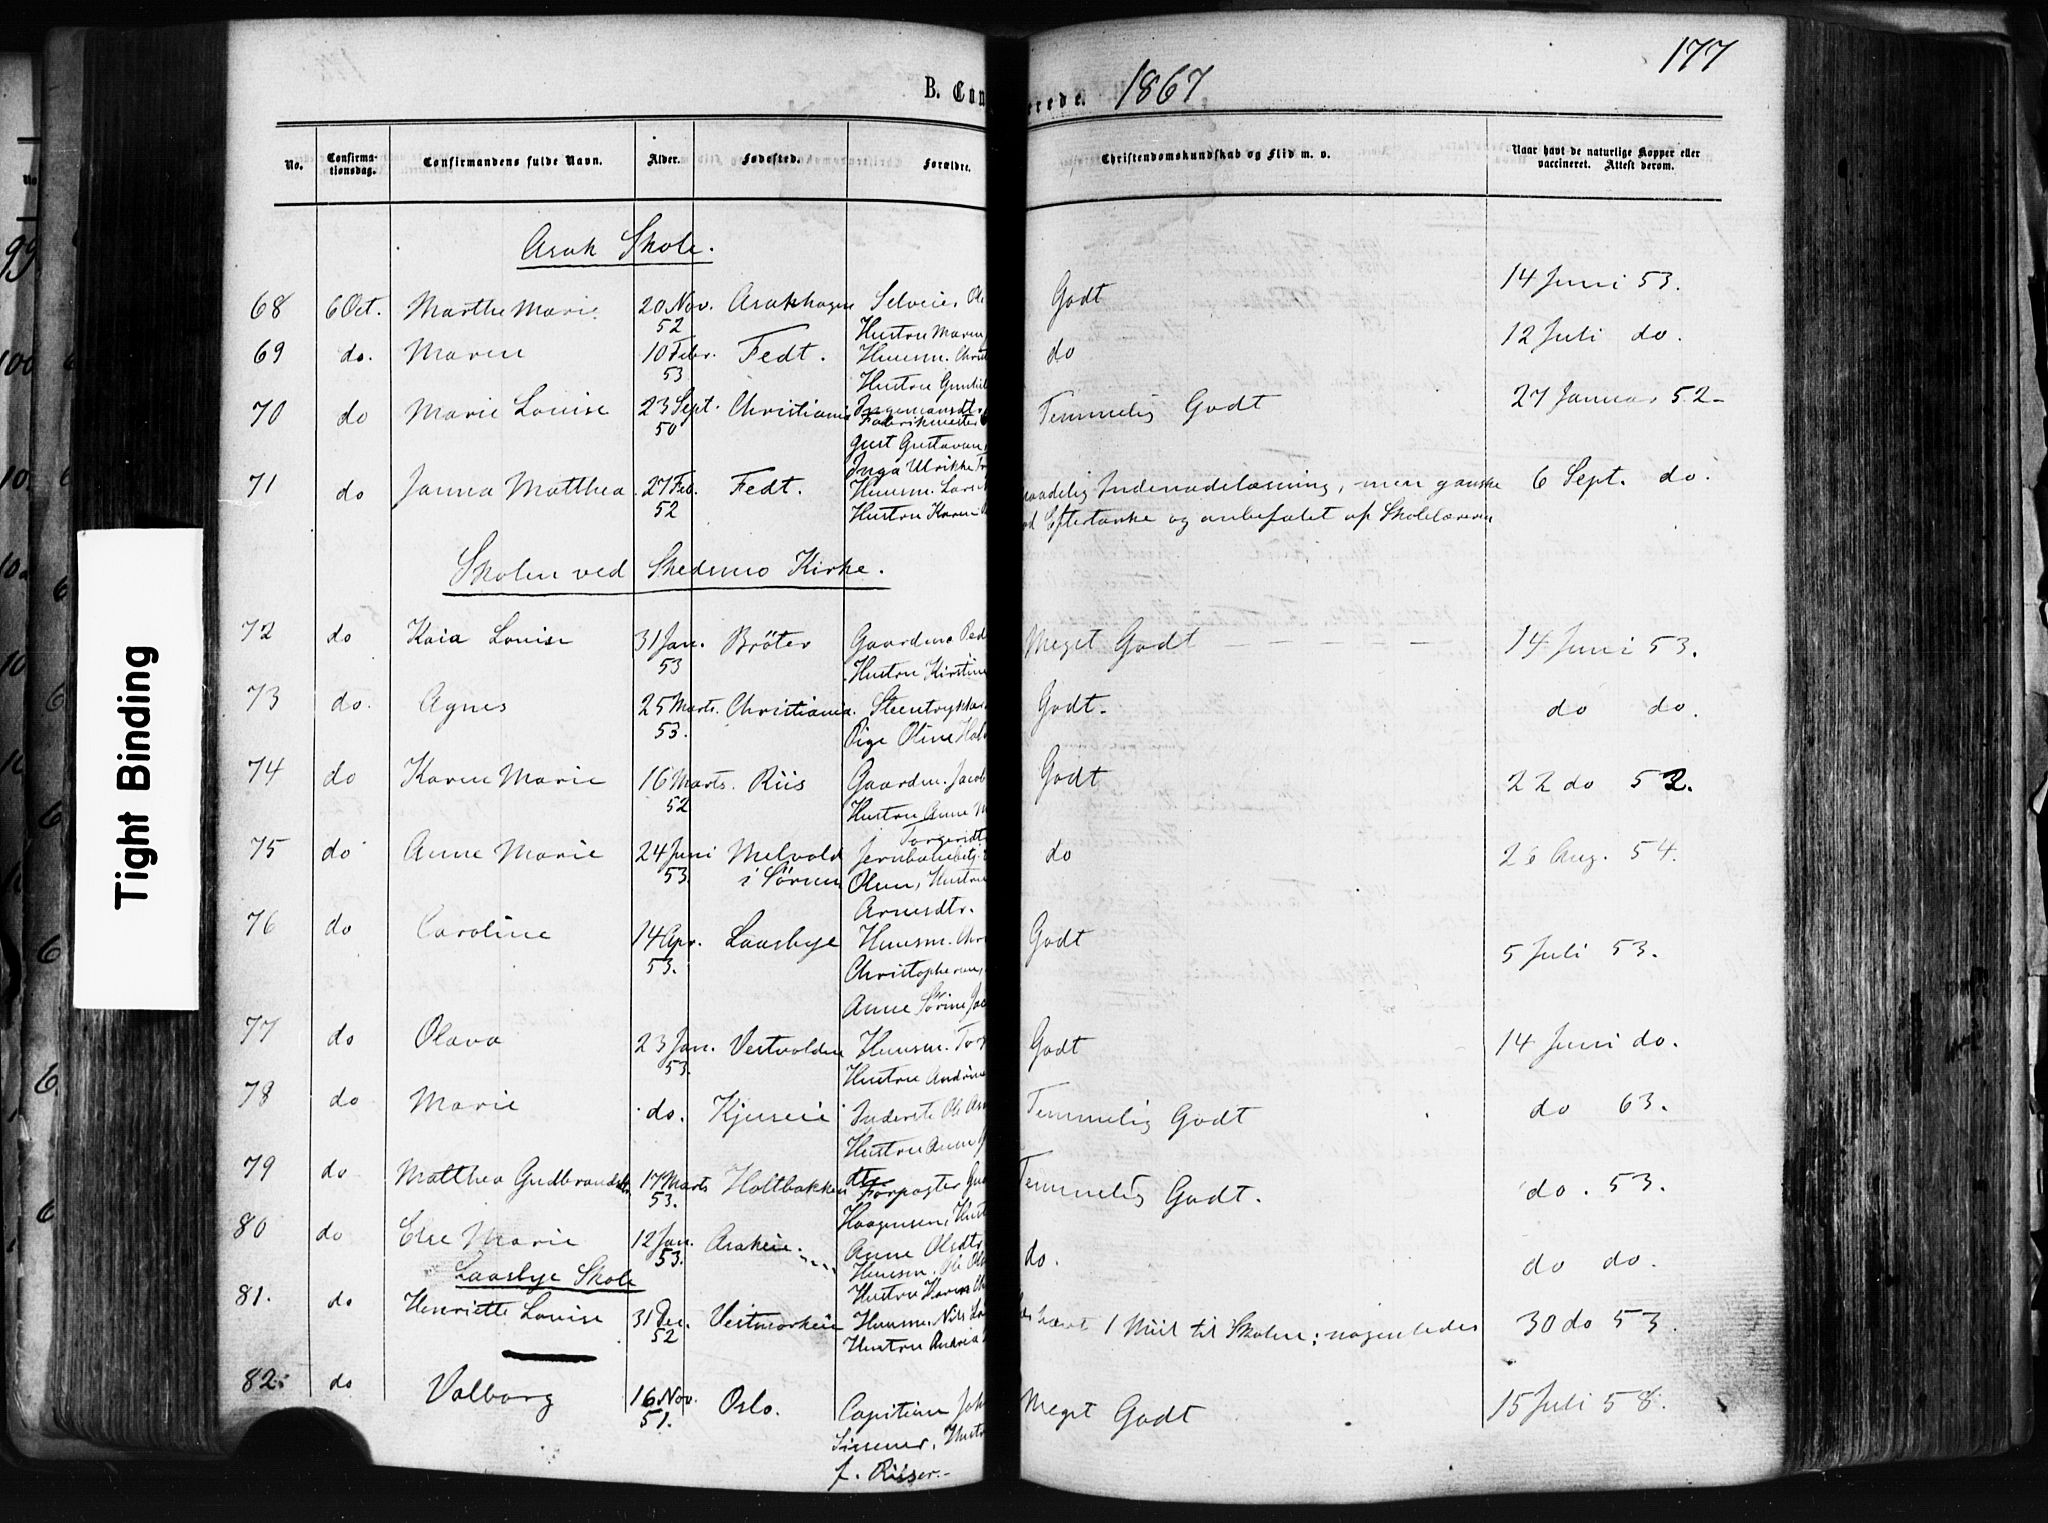 177
B. Con
erede. 1867
No. Confirmationsdag. Confirmandens fulde Navn. Alder. Fødested. Forældre. Christendomskundskab og Flid m. v. Naar havt de naturlige Kopper eller vaccineret. Attest derom.
Asak Skole.
68 6 Oct. Marthe Marie 20 Nov. 52 Asakhagen Selveier Ole Godt 14 Juni 53.
Hustru Maren
69 do. Maren 10 Febr. 53 Fedt. Huusm. Christ do 12 Juli do.
Hustru Gunhil
Ingemansdtr.
70 do Marie Louise 23 Sept. 50 Christiania Fabrikmester Temmelig Godt 27 Januar 52-
gust Gustavson
Inga Ulrikke
71 do Janna Matthea 27 Feb. 52 Fedt. Huusm. Lars maadelig Indenadslæsning, men ganske 6 Sept. do.
Hustru Karen
Eftertanke og anbefalet af Skolelæreren
Skolen ved Skedsmo Kirke.
72 do Kaia Louise 31 Jan. 53 Brøter Gaardm. Ped Meget Godt 14 Juni 53.
Hustru Kirstine
73 do. Agnes 25 Marts. 53. Christiania. Steentrykker Godt. do do.
Pige Oline
74 do Karen Marie 16 Marts. 52 Riis Gaardm. Jacob Godt 22 do 52.
Hustru Anne M
Torgersdtr
75 do Anne Marie 24 Juni 53. Melvold i Sørum Jernbanebetj. do 26 Aug. 54.
Olsen, Hustru
Arnesdtr.
76 do Caroline 14 Apr. 53. Laasbye Huusm. Chr Godt 5 Juli 53.
Christophersen,
Anne Sørine Jac
77 do Olava 23 Jan. 53. Vestvolden Huusm. Torg Godt 14 Juni do.
Hustru Andrine
78 do Marie do. Kjuseie Inderste Ole Temmelig Godt do 63.
Hustru Anne
dtr
79 do Matthea Gudbrandsdtr 17 Marts 53. Holtbakken Forpagter Gud Temmelig Godt. do. 53.
Haagensen, Hust
Anne Olsdtr
80 do Else Marie 12 Jan. 53. Asakeie. Huusm. Ole Ols do. do do.
Hustru Karen
Laasbye Skole
81. do Henriette Louise 31 Dec. 52 Vestmorkeie Huusm. Nils La 1 Miil til Skolen; nogenledes 30 do 53.
Hustru Andrea
82. do Valborg 16 Nov. 51. Oslo. Capitain Joh Meget Godt 15 Juli 58.
Sissener, Hustr
f. Riiser.-
Tight Binding